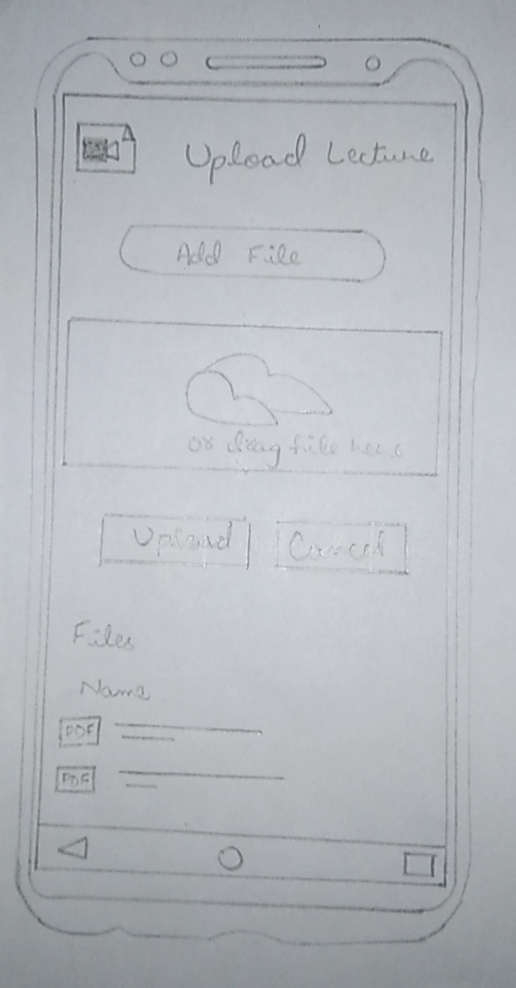 Upload Lecture
Add File
or drag file here
Upload
Cancel
Files
Name
PDF
PDF